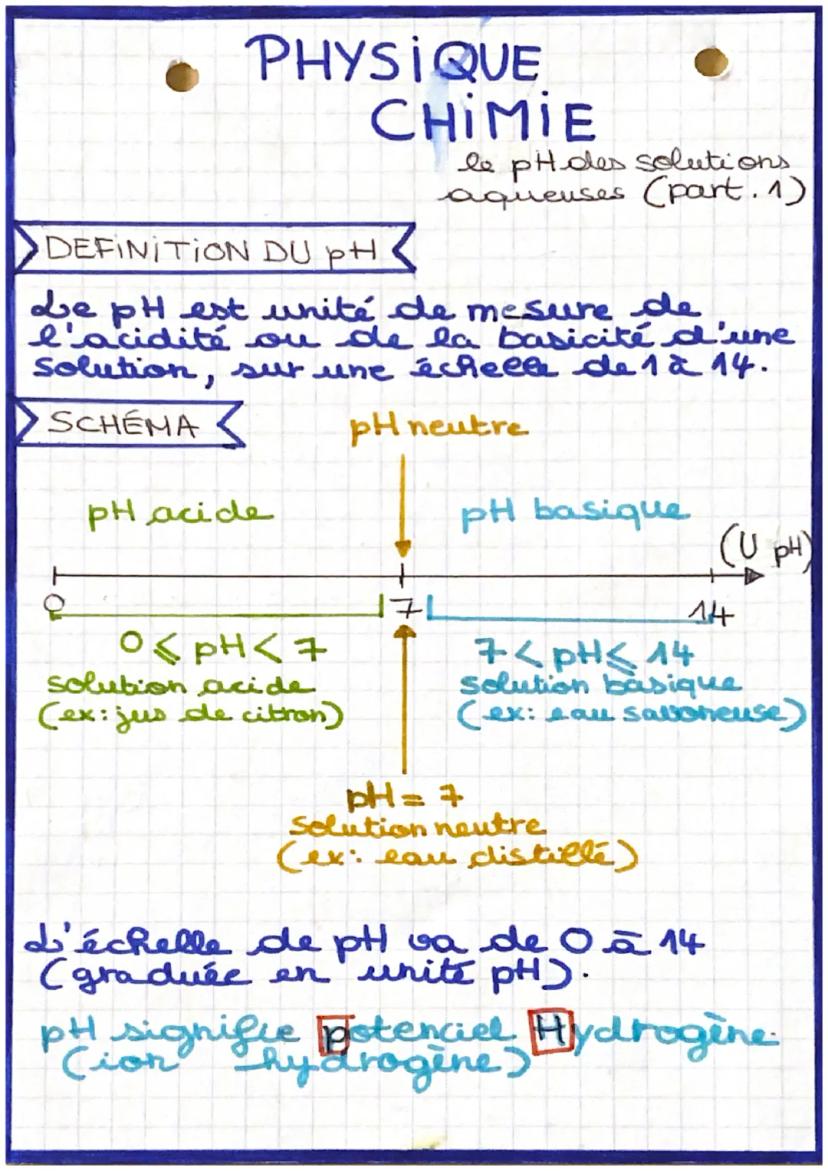 PHYSIQUE
CHIMIE
le pH des solutions
aqueuses (part. 1)
DEFINITION DU pH
Le pH est unité de mesure de
l'acidité ou de la basicité d'une
solution, sur une échelle de 1 à 14.
SCHÉMA
pH neutre
pH acide
pH basique
(U pH)
0
7
14
0 ⩽ pH < 7
solution acide
(ex: jus de citron)
7 < pH ⩽ 14
solution basique
(ex: eau savoneuse)
pH = 7
solution neutre
(ex: eau distillé)
L'échelle de pH va de 0 à 14
(graduée en unité pH).
pH signifie potenciel Hydrogène.
(ion hydrogène)